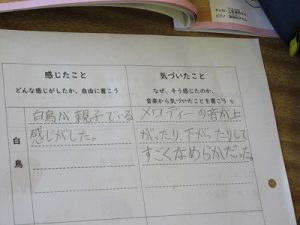 感じたこと
どんな感じがしたか、自由に書こう
気づいたこと
なぜ、そう感じたのか、
音楽から気づいたことを書こう
白鳥
白鳥が親子でいる
感じがした。
メロディーの音が上
がったり、下がったりして
すごくなめらかだった。